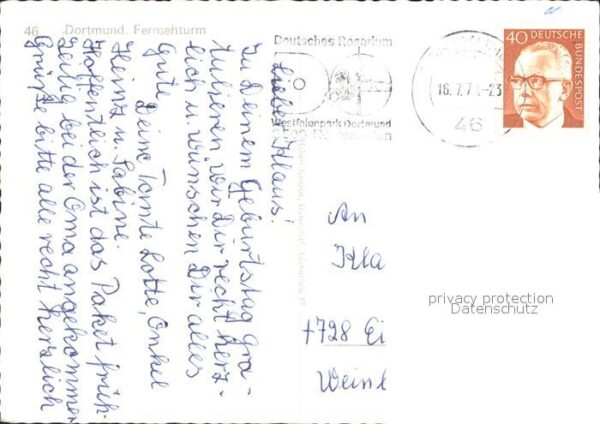 46 Dortmund, Fernsehturm
Lieber Klaus!
Zu Deinem Geburtstag gra-
tulieren wir Dir recht herz-
lich u. wünschen Dir alles
Gute Deine Tante Lotte, Onkel
Heinz u. Sabine.
Hoffentlich ist das Paket früh-
zeitig bei der Oma angekommen
Grüße bitte alle recht herzlich
Deutsches Rosarium
Westfalenpark Dortmund
16.7.7 -23
46
40 DEUTSCHE
BUNDESPOST
An
Kla
privacy protection
Datenschutz
+728 Ei
Wein